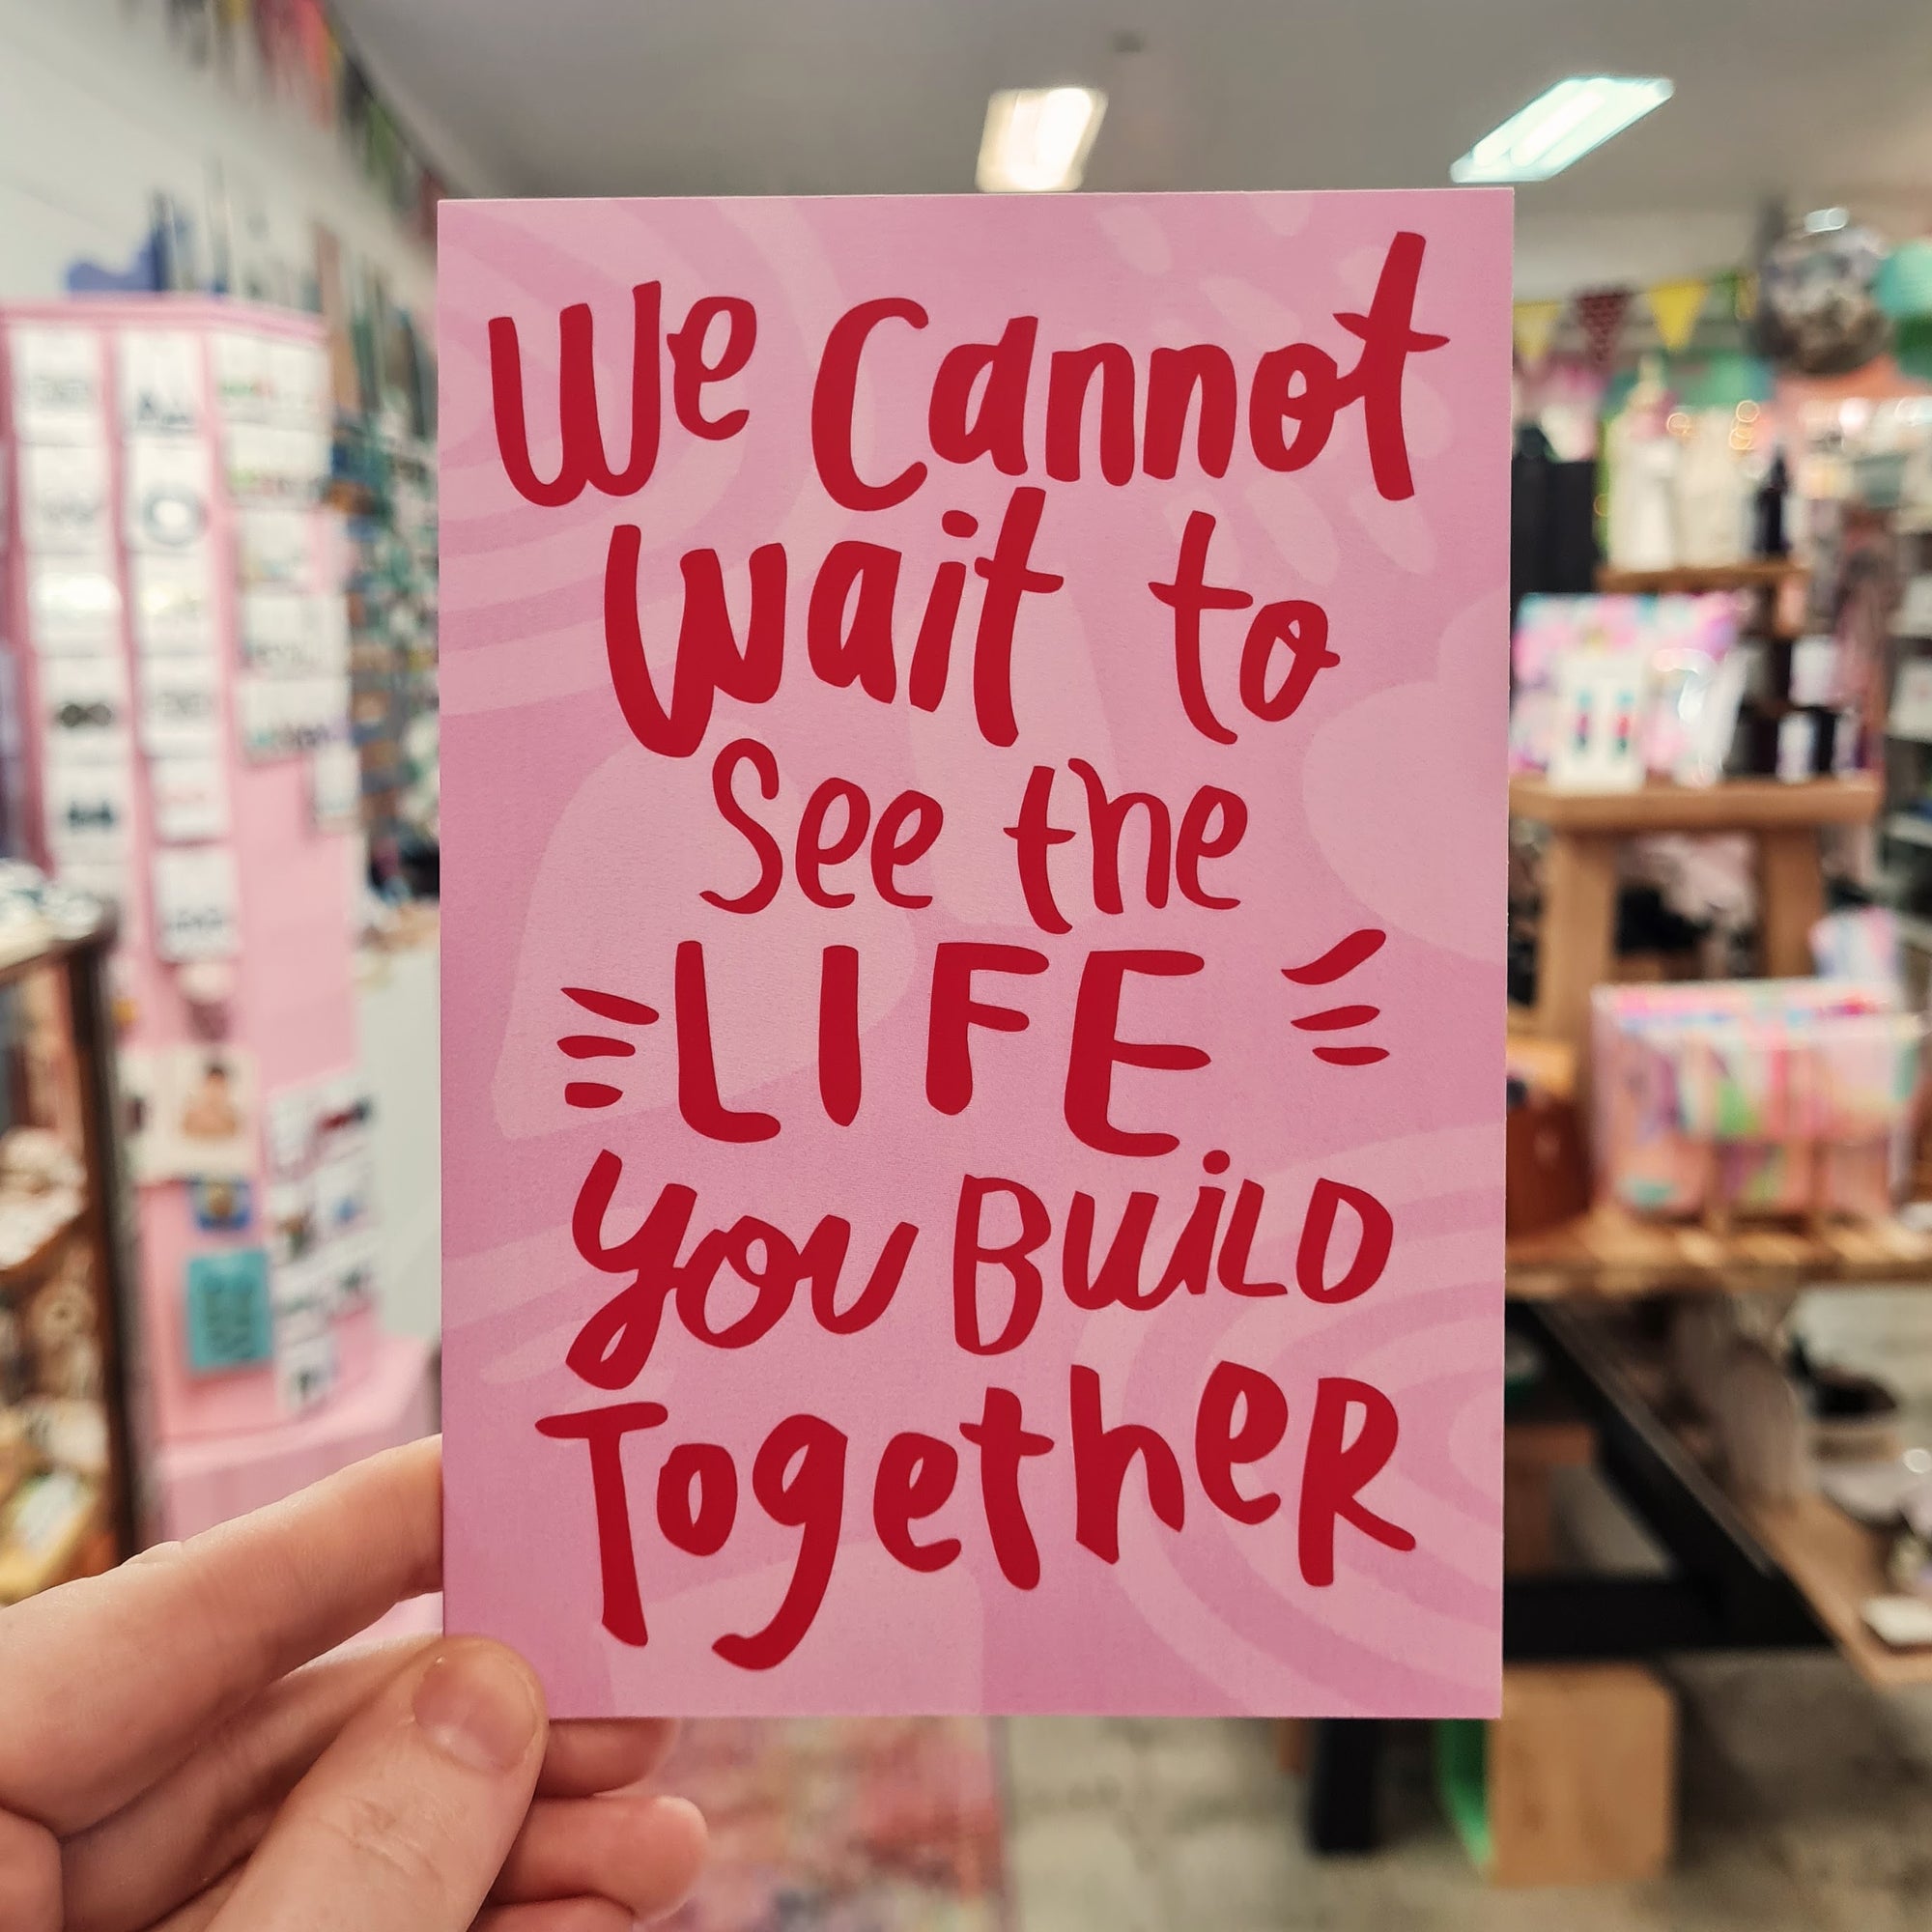 We Cannot
wait to
See the
LIFE
you BUiLD
TogetheR